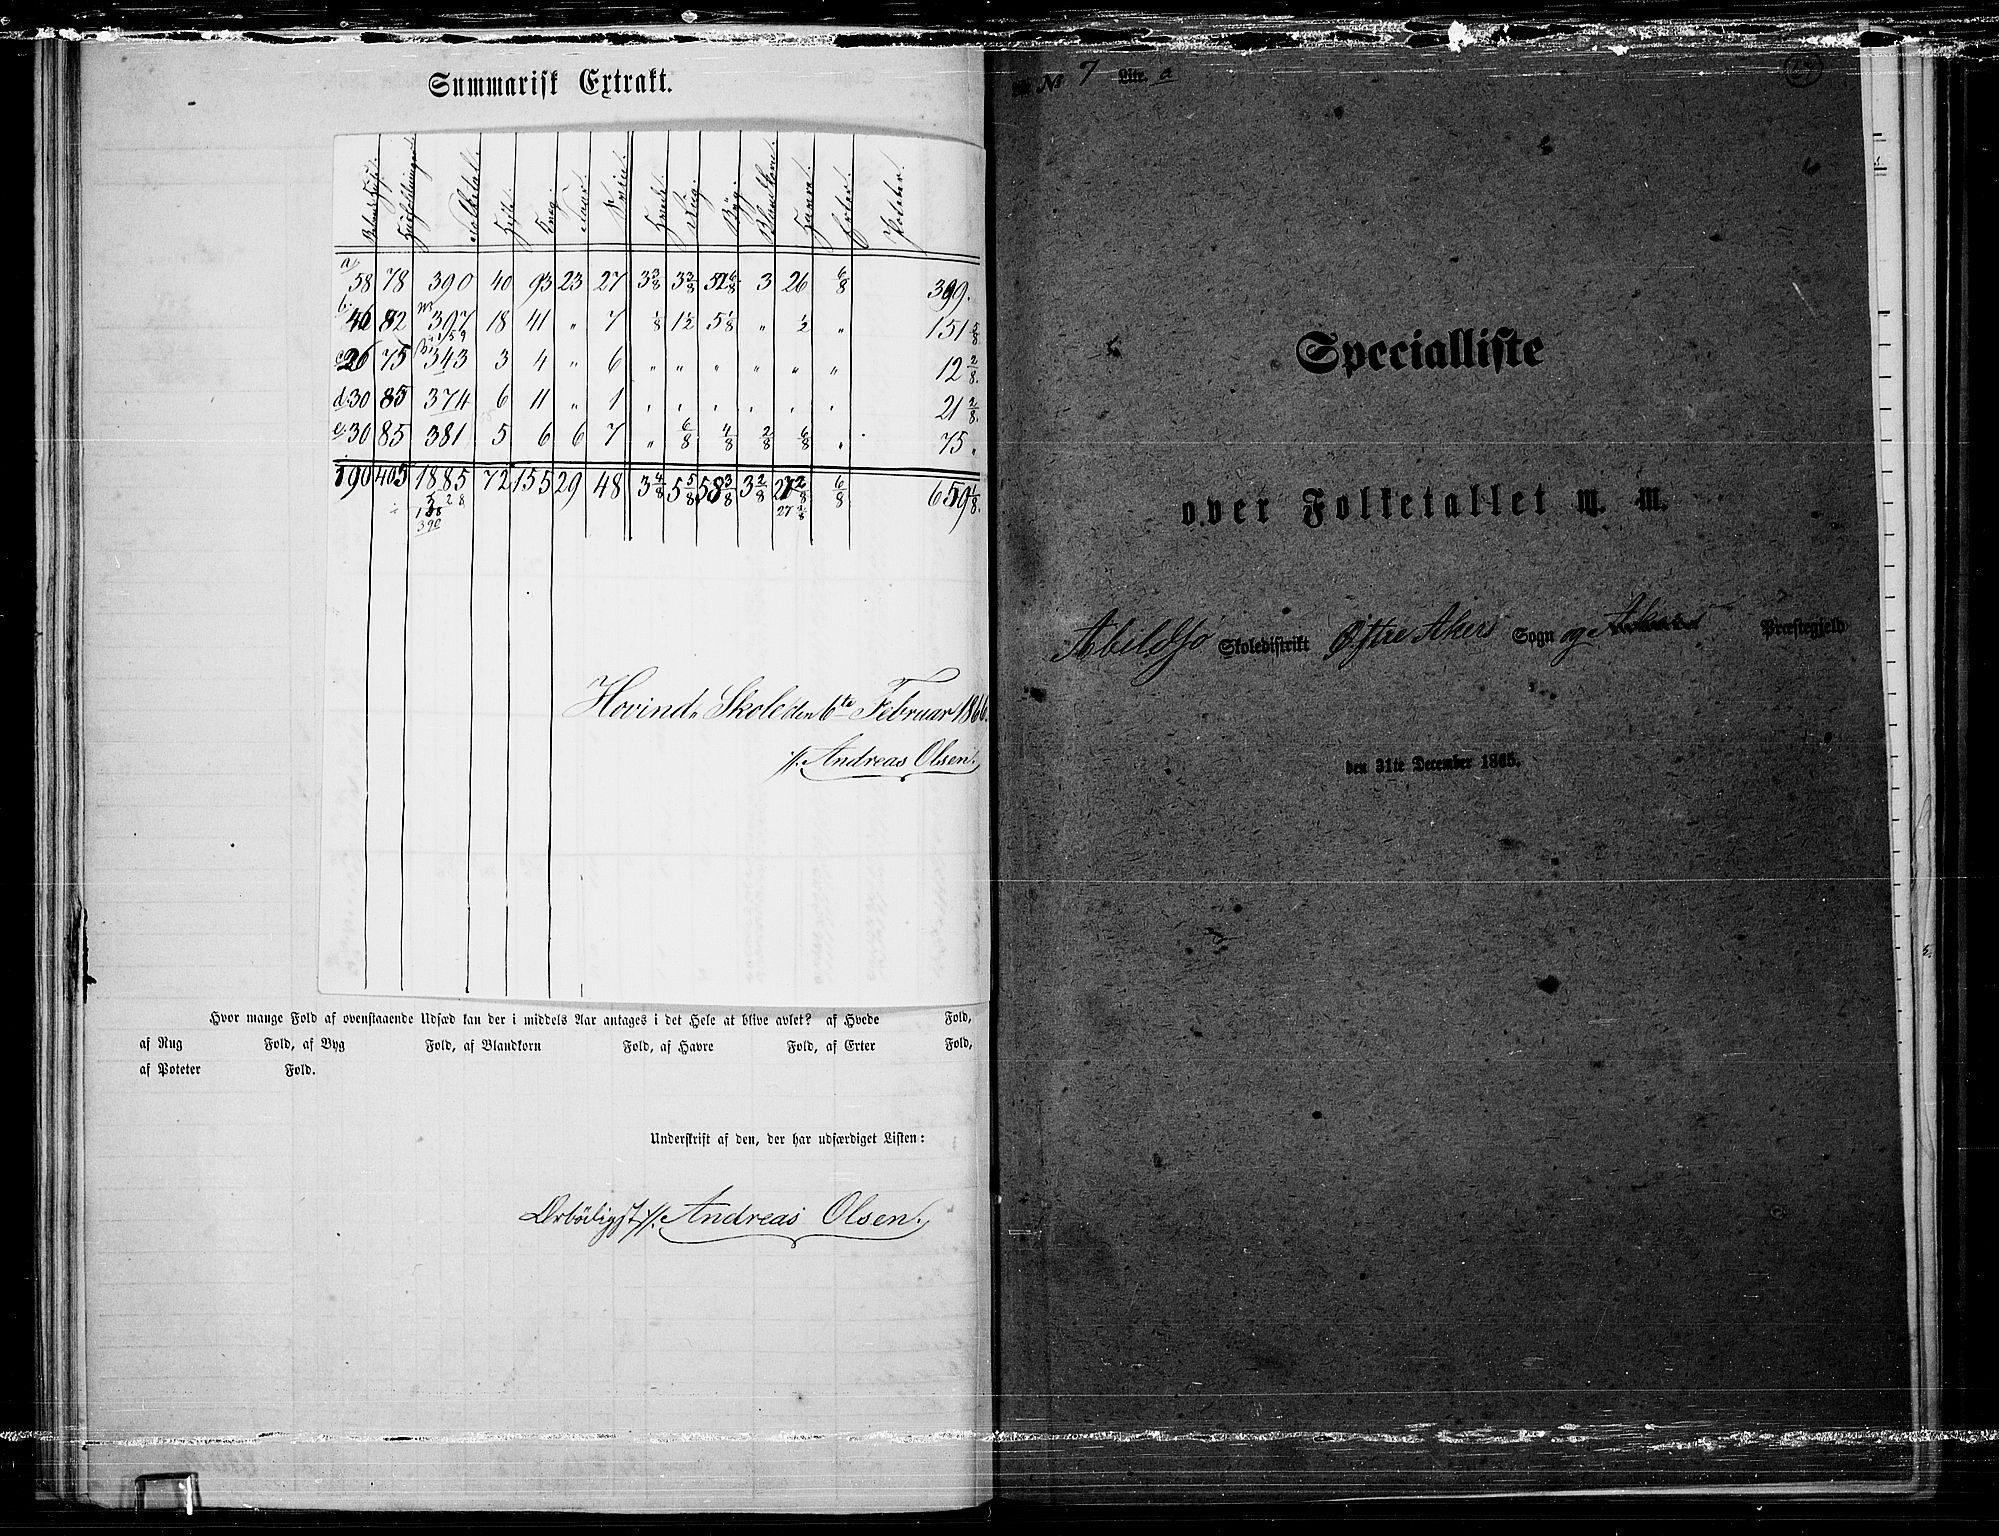 Summarisk Extrakt.
Beboede Huse. Husholdninger. Folketal. Heste. Kvæg. Faar. Sviin. Hvede. Rug. Byg. Blandkorn. Havre. Erter. Poteter.
a, 58 78 390 40 93 23 27 3 3/8 3 3/8 52 6/8 3 26 6/8 399.
b. 46 82 397 18 41 „ 7 1/8 1 1/2 5 1/8 „ 1/2 „ 151 5/8.
c. 26 75 343 3 4 „ 6 „ „ „ „ „ „ 12 2/8.
d. 30 85 374 6 11 „ 1 „ „ „ „ „ „ 21 2/8.
e. 30 85 381 5 6 6 7 „ 6/8 4/8 2/8 6/8 „ 75 „
190 405 1885 72 155 29 48 3 4/8 5 5/8 58 3/8 3 2/8 27 2/8 6/8 659 1/8.
27 2/8
390
Hovind Skole den 6te Februar 1866.
Andreas Olsen.
Hvor mange Fold af ovenstaaende Udsæd kan der i middels Aar antages i det Hele at blive avlet? af Hvede Fold,
af Rug Fold, af Byg Fold, af Blandkorn Fold, af Havre Fold, af Erter Fold,
af Poteter Fold.
Underskrift af den, der har udfærdiget Listen:
Ærbödigst Andreas Olsen.
No 7 Litr. a
Specialliste
over Folketallet m. m.
Abildsö Skoledistrikt Östre Akers Sogn og Præstegjeld
den 31te December 1865.